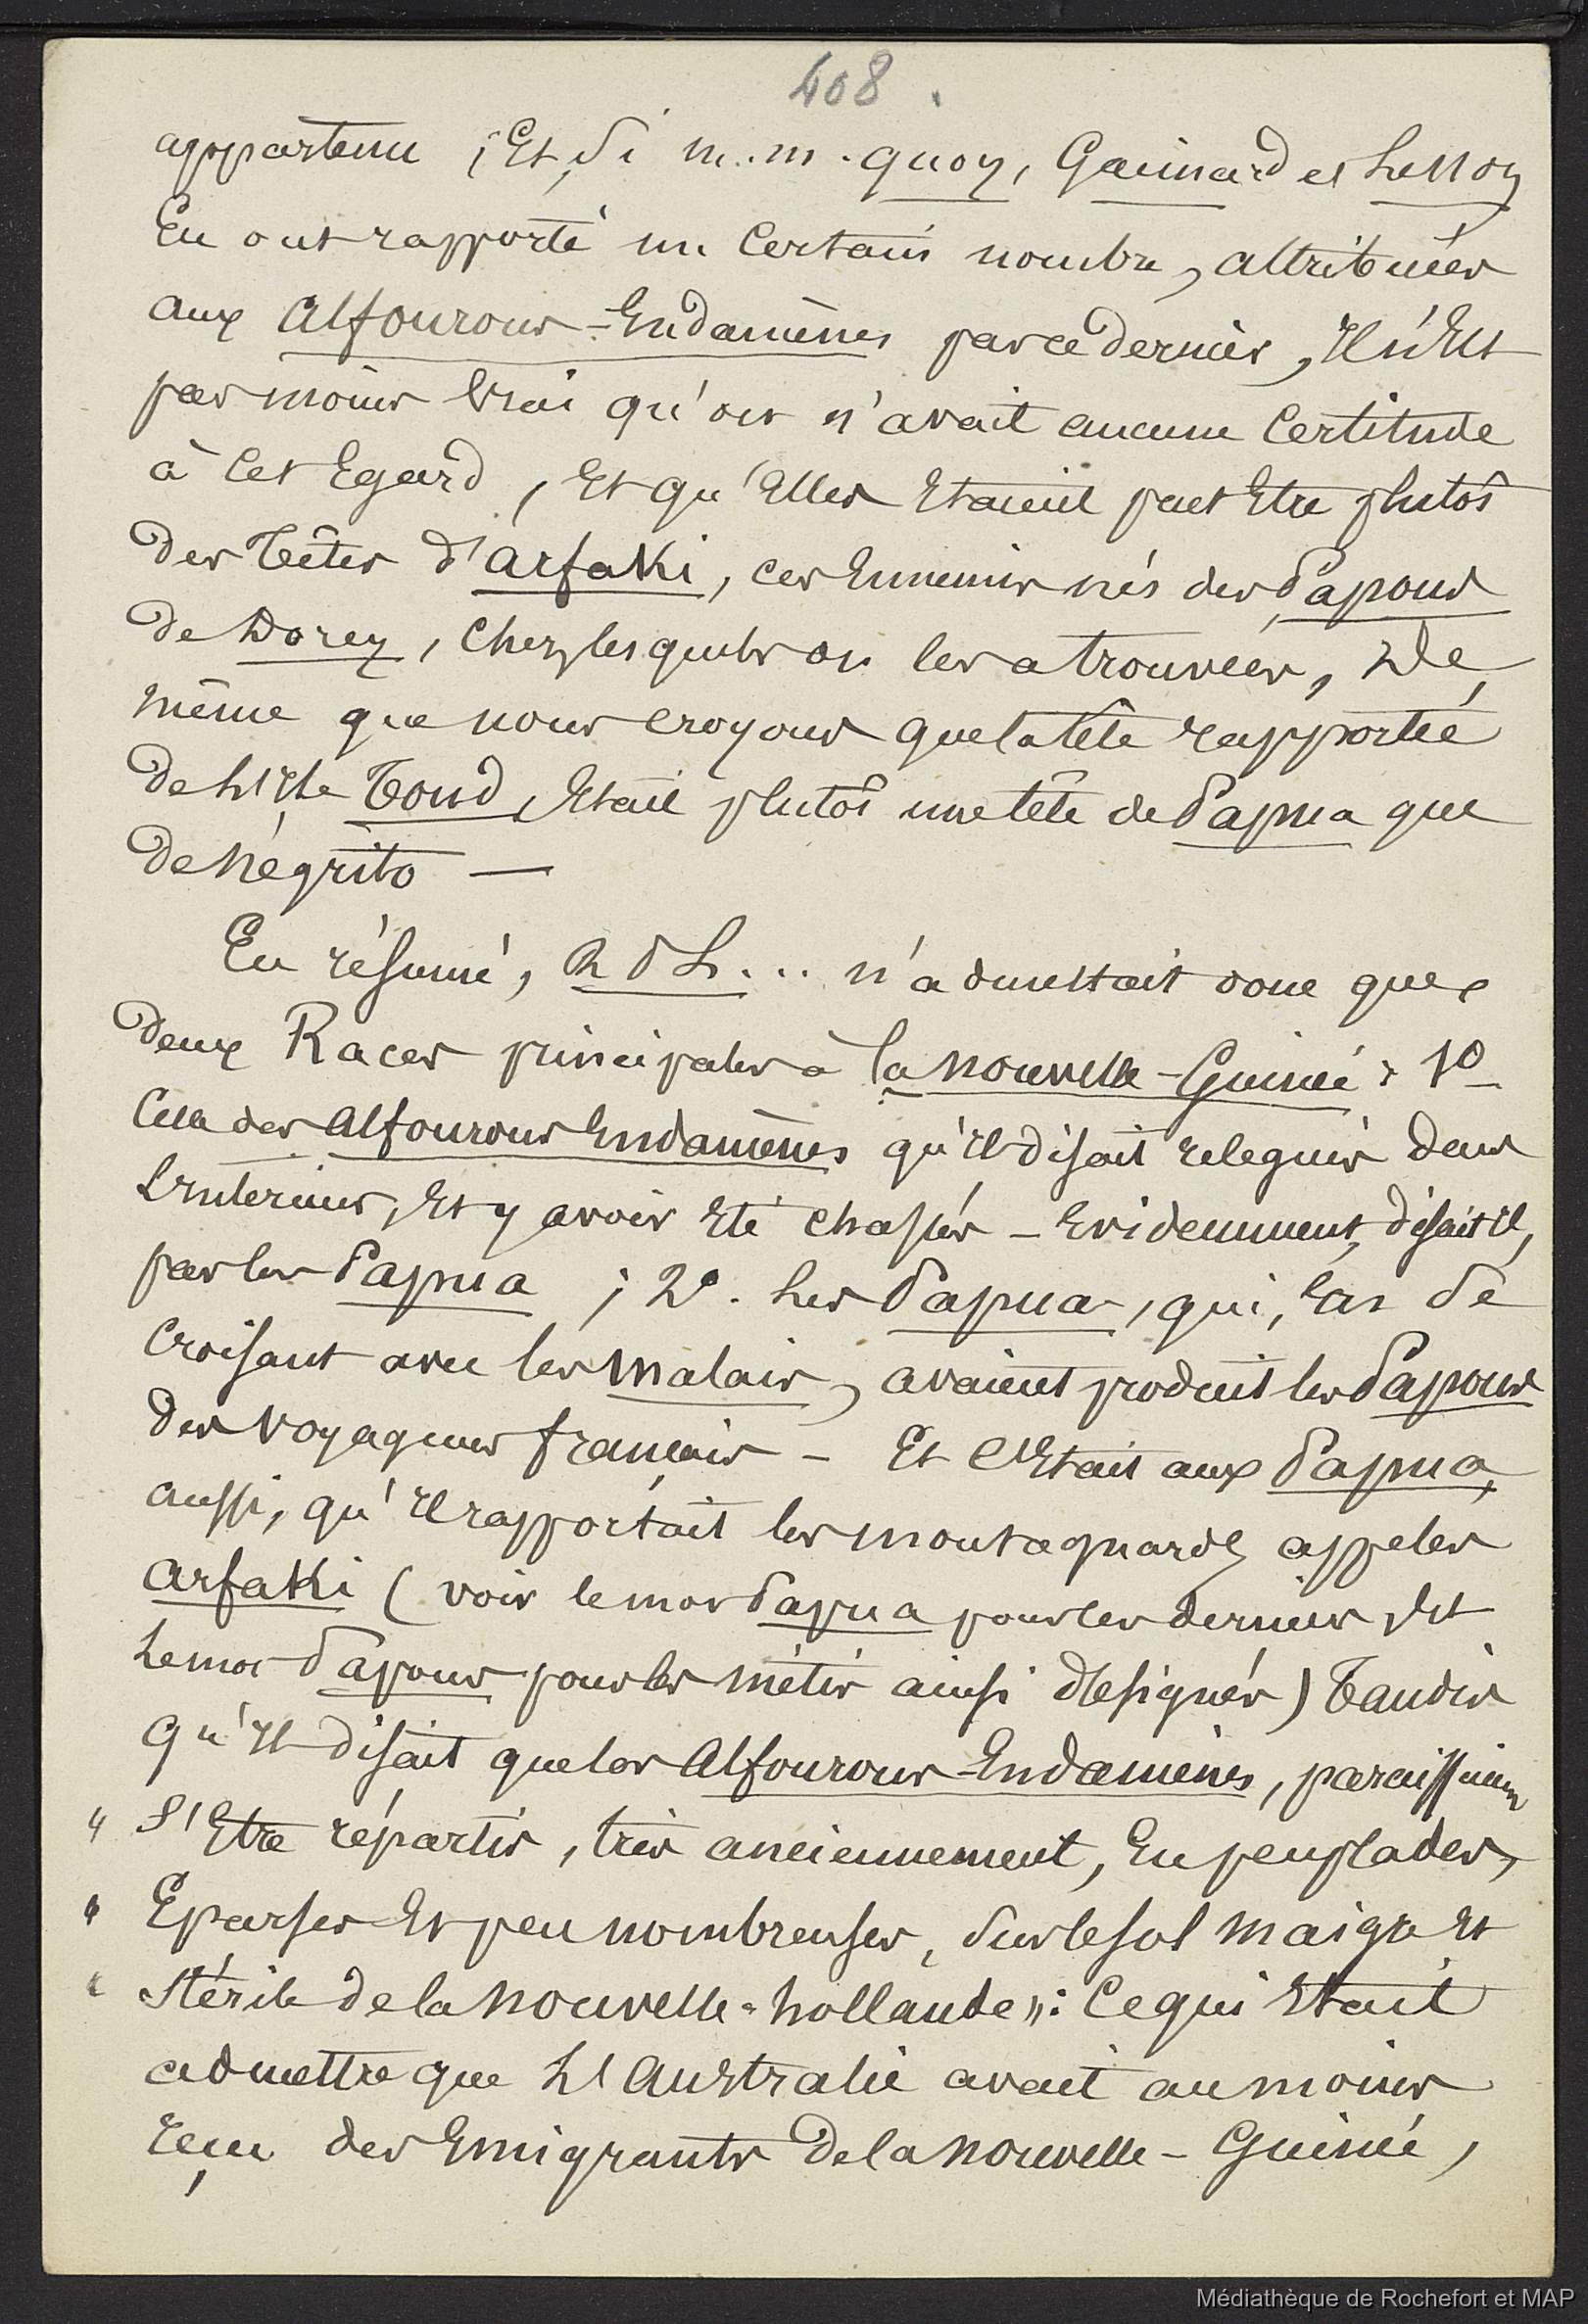 408.
appartenu ; Et, si m.m. quoy, Gaimard et Lesson
En ont rapporté un Certain nombre, attribuées
aux Alfourous-Endamènes par ce dernier, Il n'Est
pas moins vrai qu'on n'avait aucune Certitude
à Cet Egard, Et qu'Elles Etaient peut Etre plutôt
des Têtes d'arfaki, ces Ennemis nés des Papous
de Dorey, Chez lesquels on les a trouvées, De
même que nous croyons que la tête rapportée
de L'Ile Toud, Etait plutôt une tête de Papua que
de négrito —
En résumé, R P L... n'admettait donc que
deux Races principales à la nouvelle-Guinée : 1o
Celle des Alfourous Endamènes qu'Il disait relegués dans
L'interieur, Et y avoir Eté chassés - Evidemment, disait il,
par les Papua ; 2o. Les Papua, qui, En se
Croisant avec les malais, avaient produit les Papous
des voyageurs français - Et C'Etait aux Papua,
aussi, qu'Il rapportait les montagnards appelés
arfaki ( voir le mot Papua pour les derniers Et
Le mot Papous pour les métis ainsi désignés ) Tandis
qu'Il disait que les Alfourous-Endamènes, paraissaient
" S'Etre répartis, très anciennement, En peuplades,
" Eparses Et peu nombreuses, sur le sol maigre Et
" Stérile de la nouvelle-hollande": Ce qui Etait
admettre que L'Australie avait au moins
reçu des Emigrants de la nouvelle-Guinée,
Médiathèque de Rochefort et MAP